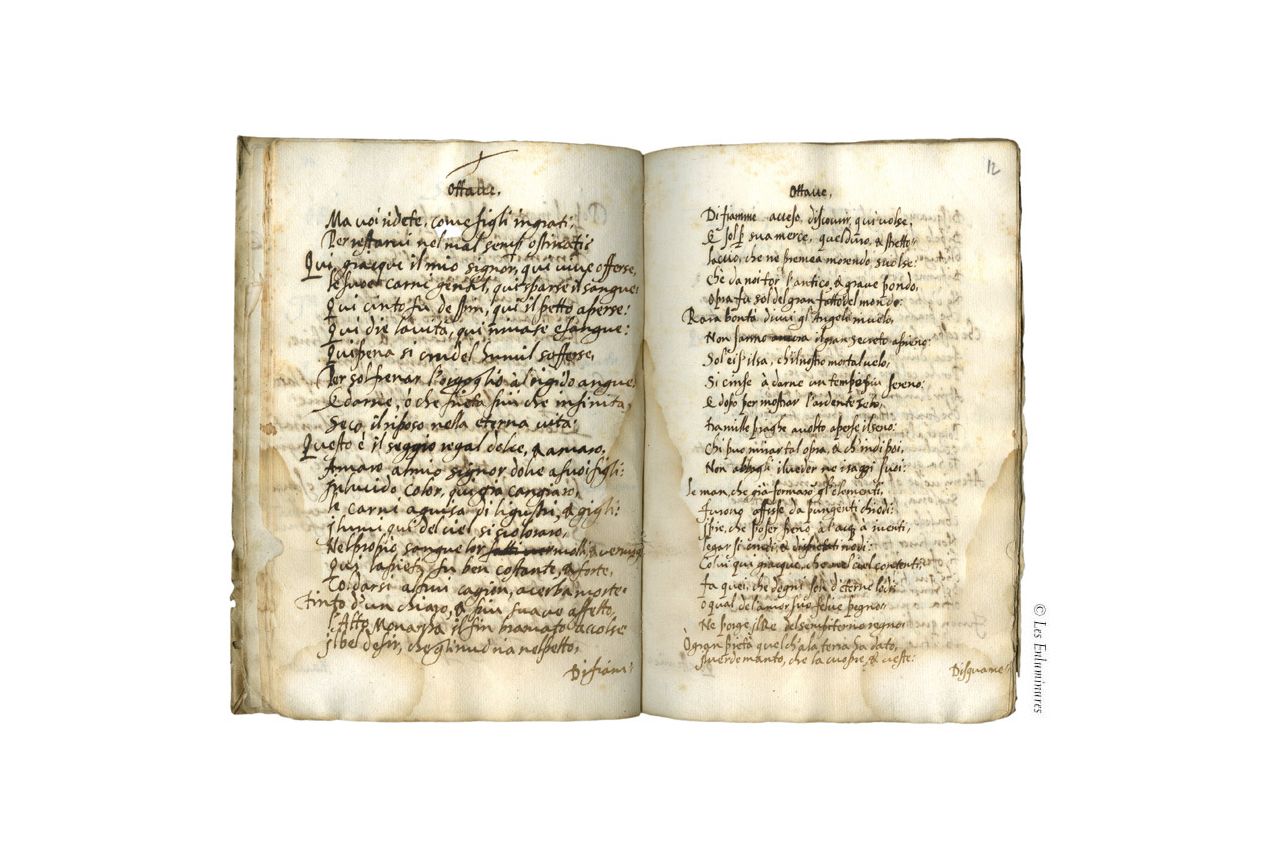 Ottave.
Ma voi ridete, come figli ingrati,
Per restarvi nel mal semp ostinati:
Qui giacque il mio signor, qui vive offerse,
Le sue carni gentil, qui sparse il sangue:
Qui cinto fu de spin, qui il petto aperse:
Qui diè la vita, qui rimase esangue:
Qui pena si crudel humil sofferse,
Per sol frenar l'orgoglio al rigido angue,
E darne, ò che pietà più che infinita,
Seco il riposo nella eterna vita:
Questo è il seggio regal dolce, & amaro,
Amaro al mio signor dolce a suoi figli:
color, qui già cangiaro,
le carni aguisa di ligustri, & gigli:
I lumi qui del ciel si scoloraro,
Nel proprio sangue lor molli, & vermigli
Qui la pietà fu ben costante, & forte,
Co'l darsi altrui cagion, acerba morte:
Tinto d'un chiaro, & più suave affetto,
l'Alto Monarca il fin bramato accolse
il bel desir, che gli nudria nel petto,
Di fiam:
12
Ottave.
Di fiamme acceso, discovrir qui volse:
E sol p sua merce, quel duro, & stretto
laccio, che ne premea morendo, sciolse:
Che da noi tor l'antico, & grave pondo,
Opra fu sol del gran fattor del mondo:
Rara bontà di cui gl'Angeli in cielo,
Non sanno ancora il gran secreto apieno:
Sol ei si sa, ch'il nostro mortal velo,
Si cinse à darne un tempo più sereno:
E dopo per mostrar l'ardente zelo,
tra mille piaghe avolto aperse il seno:
Chi può mirar tal opra, & ch'indi poi,
Non abbagli il veder ne i raggi suoi:
le man, che già formaro gl'elementi,
furono affisse da pungenti chiodi:
I piè, che poser freno a l'acq; à i venti,
legar si crudi, & nodi:
Colui qui giacque, che nel ciel contenti,
Fa quei, che degni son d'eterne lodi:
O qual del amor suo felice pegno,
Ne porge il Re del sempiterno regno:
O gran pietà quel ch'a la terra ha dato,
il verde manto, che la cuopre, & veste:
Di squame
© Les Enluminures